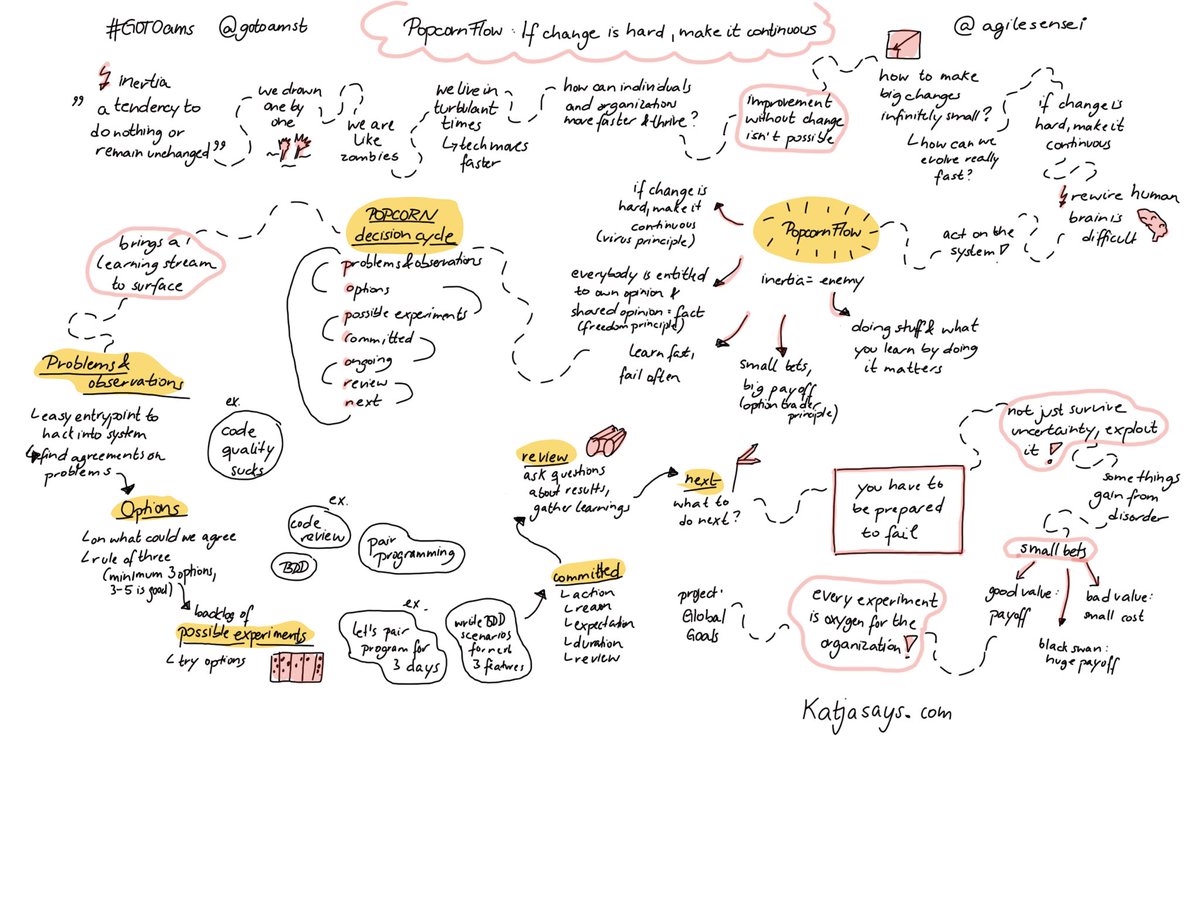 #GOTOams @gotoamst
PopcornFlow: If change is hard, make it continuous
@agilesensei
inertia
„ a tendency to
do nothing or
remain unchanged”
we drown
one by
one
we are
like
zombies
we live in
turbulant
times
↳tech moves
faster
how can individuals
and organization
move faster & thrive?
improvement
without change
isn't possible
how to make
big changes
infinitely small?
↳how can we
evolve really
fast?
if change is
hard, make it
continuous
rewire human
brain is
difficult
act on the
system!
PopcornFlow
inertia = enemy
if change is
hard, make it
continuous
(virus principle)
everybody is entitled
to own opinion &
shared opinion = fact
(freedom principle)
learn fast,
fail often
small bets,
big payoff
(option trader
principle)
doing stuff & what
you learn by doing
it matters
POPCORN
decision cycle
problems & observations
options
possible experiments
committed
ongoing
review
next
brings a
learning stream
to surface
Problems &
observations
↳easy entrypoint to
hack into system
↳find agreements on
problems
ex.
code
quality
sucks
Options
↳on what could we agree
↳rule of three
(minimum 3 options,
3-5 is good)
ex.
code
review
BDD
pair
programming
backlog of
possible experiments
↳try options
ex.
let's pair
program for
3 days
write BDD
scenarios
for next
3 features
committed
↳action
↳reason
↳expectation
↳duration
↳review
review
ask questions
about results,
gather learnings
next
what to
do next?
you have to
be prepared
to fail
not just survive
uncertainty, exploit
it!
some things
gain from
disorder
small bets
good value:
payoff
black swan:
huge payoff
bad value:
small cost
every experiment
is oxygen for the
organization!
project:
Global
Goals
Katjasays.com